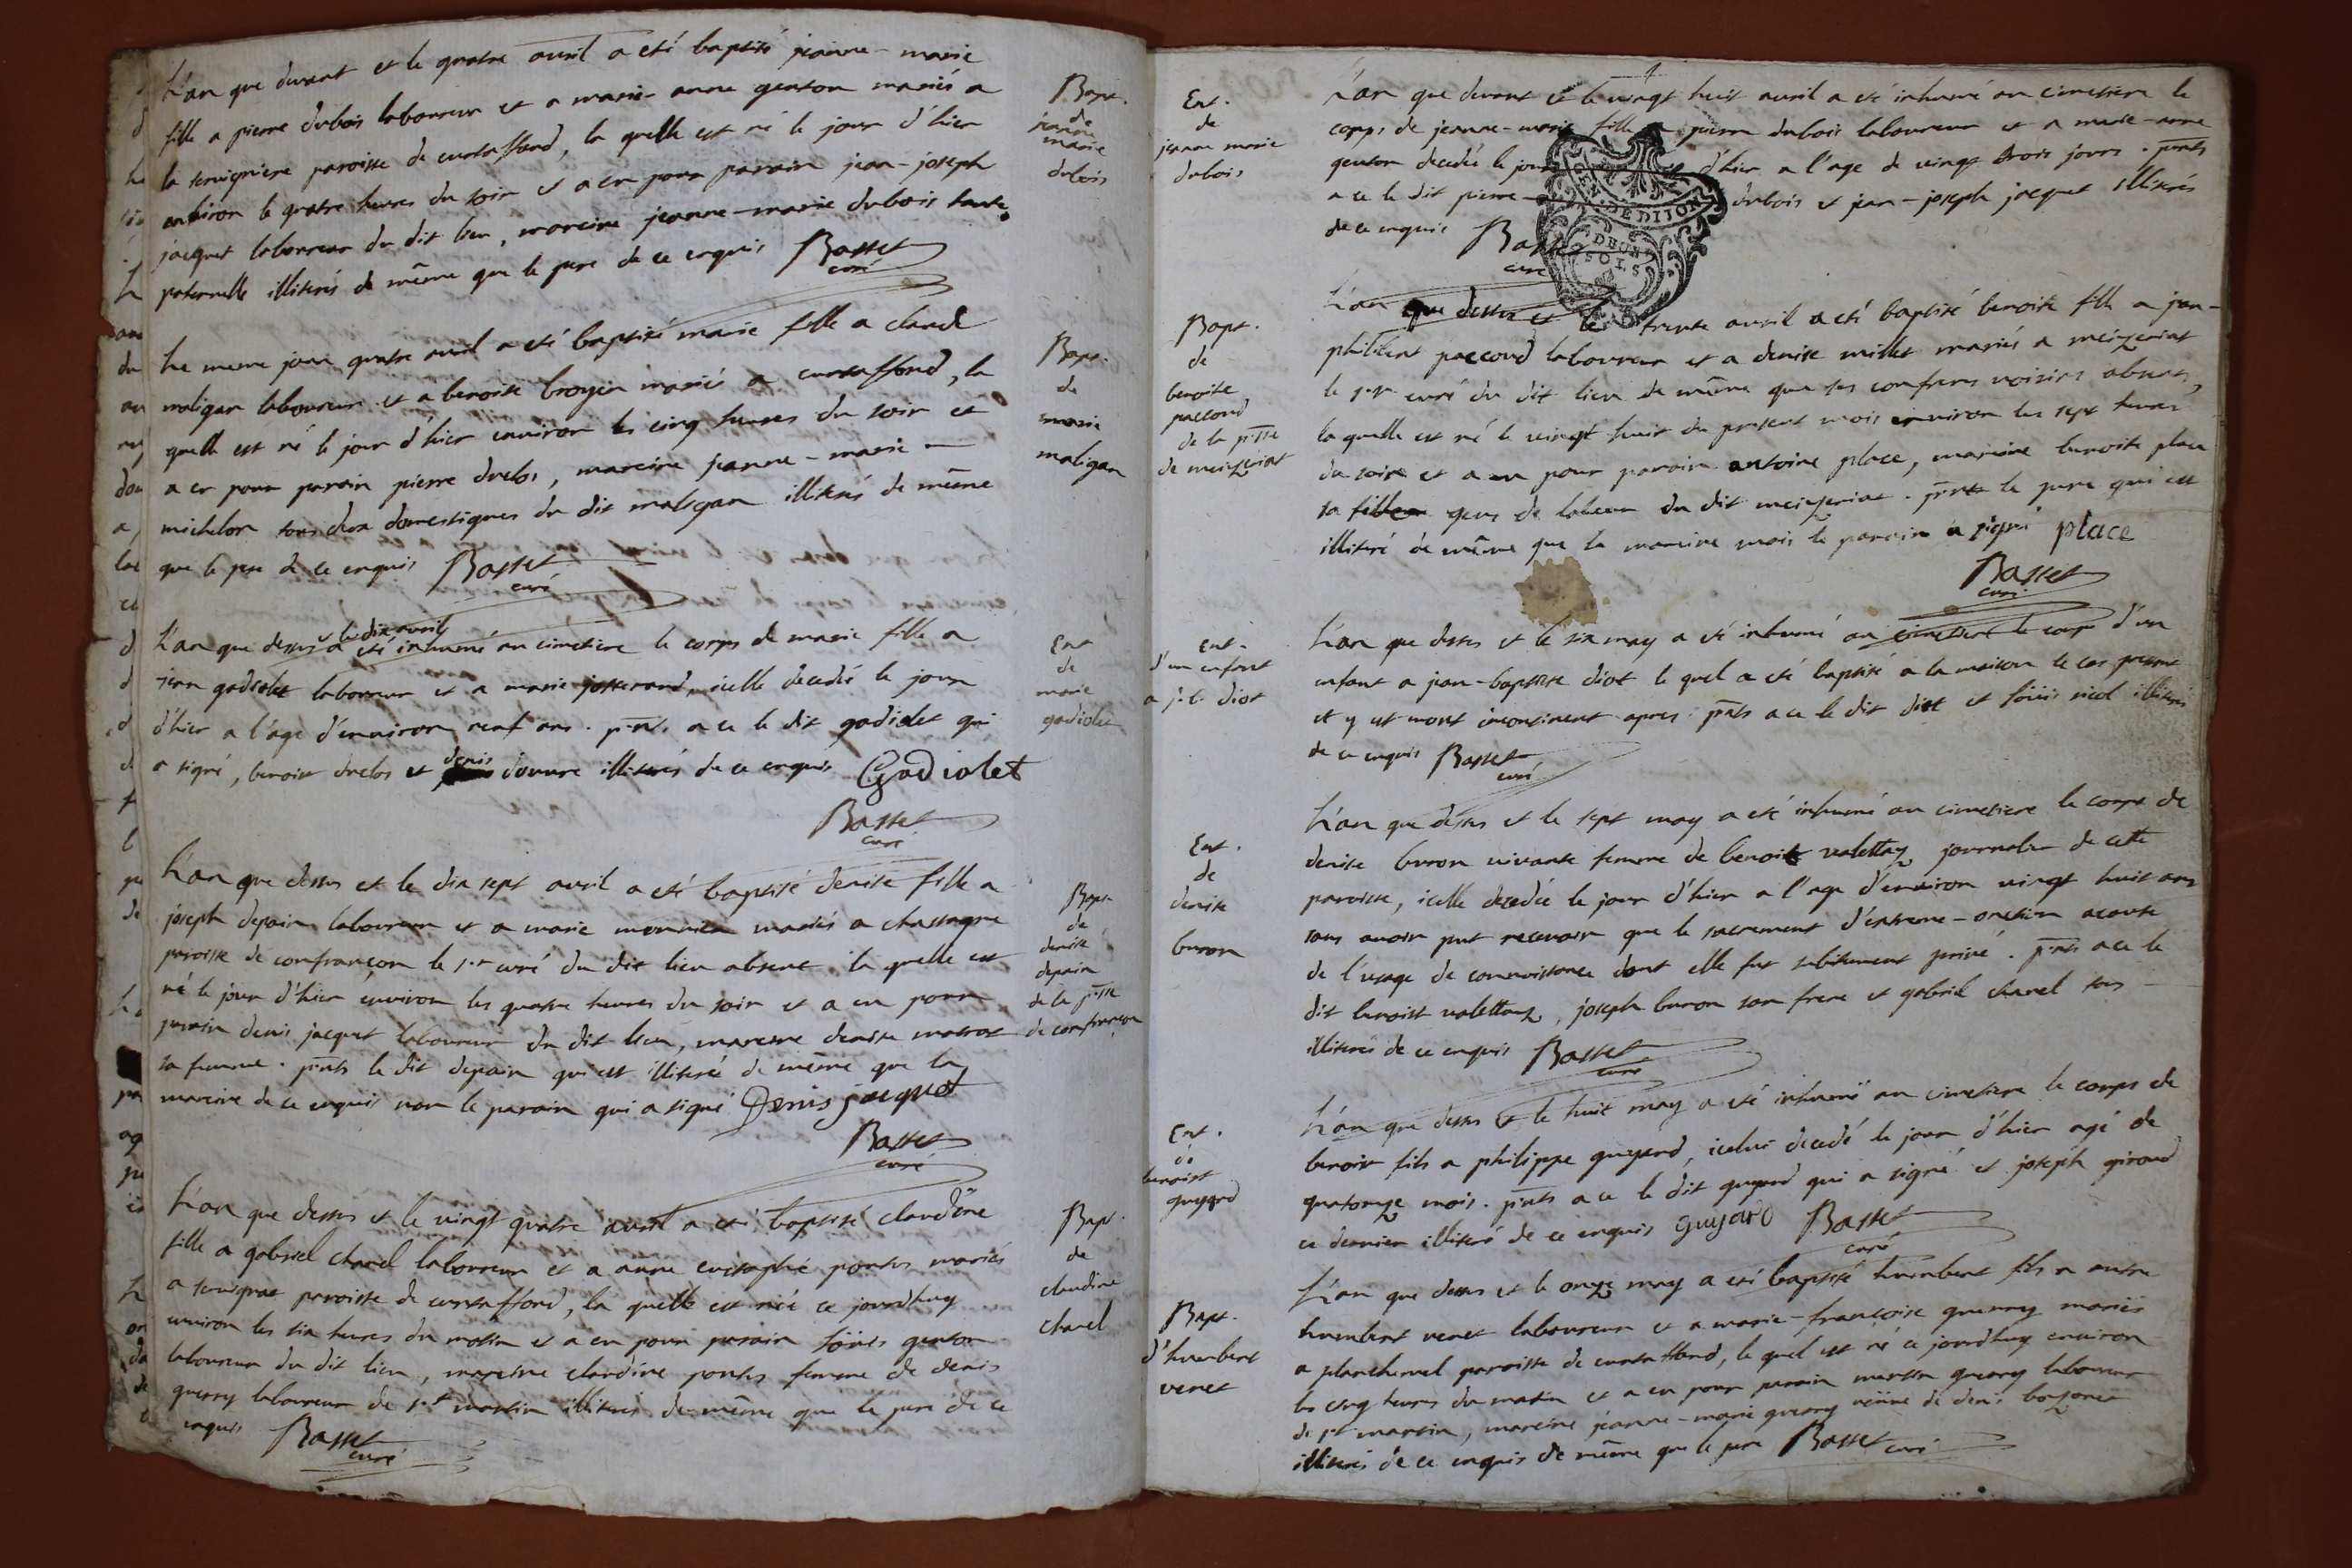 L'an que devant et le quatre avril a eté baptisé jeanne-marie
fille a pierre dubois laboureur et a marie-anne genton mariés a
la servigniere paroisse de curtaffond, la quelle est né le jour d'hier
environ le quatre heures du soir et a eu pour parain jean-joseph
jacquet laboureur du dit lieu, mareine jeanne-marie dubois tante
paternelle illiterés de même que le pere de ce enquis Basset
curé
Bapt.
de
jeanne
marie
dubois
Le meme jour quatre avril a eté baptisé marie fille a claude
maligan laboureur et a benoite broyer mariés a curtaffond, la
quelle est né le jour d'hier environ les cinq heures du soir et
a eu pour parain pierre drebos, mareine jeanne-marie
michelon tous deux domestiques du dit maligan illiterés de même
que le pere de ce enquis Basset
curé
Bapt.
de
marie
maligan
et le dix avril
L'an que dessus a eté inhumé au cimetiere le corps de marie fille a
jean gadiolet laboureur et a marie josserand, icelle decedé le jour
d'hier a l'age d'environ neuf ans. pnts a ce le dit gadiolet qui
a signé, benoit drebos et denis illiterés de ce enquis Gadiolet
Basset
curé
Ent
de
marie
gadiolet
L'an que dessus et le dix sept avril a eté baptisé denise fille a
joseph depain laboureur et a marie mariés a chassagne
paroisse de confrançon le sr curé du dit lieu absent. la quelle est
né le jour d'hier environ les quatre heures du soir et a eu pour
parain denis jacquet laboureur du dit lieu, mareine denise
sa femme. pnts le dit depain qui est illiteré de même que la
mareine de ce enquis non le parain qui a signé Denis jacquet
Basset
curé
Bapt
de
denise
depain
de la psse
de confrançon
L'an que dessus et le vingt quatre avril a eté baptisé claudine
fille a gabriel charel laboureur et a anne pontus mariés
a paroisse de curtaffond, la quelle est née ce jourdhuy
environ les six heures du matin et a eu pour parain loüis genton
laboureur du dit lieu, mareine claudine pontus femme de denis
guerry laboureur de st martin illiterés de même que le pere de ce
enquis Basset
curé
Bapt.
de
claudine
charel
L'an que devant et le vingt huit avril a eté inhumé au cimetiere le
corps de jeanne-marie fille a pierre dubois laboureur et a marie-anne
genton decedée le jour d'hier a l'age de vingt trois jours. pnts
a ce le dit pierre dubois et jean-joseph jacquet illiterés
de ce enquis Basset
curé
Ent.
de
jeanne marie
dubois
GEN. DE DIJON
DEUX
SOLS
L'an que dessus et le trente avril a eté baptisé benoite fille a jean-
philibert paccoud laboureur et a denise millet mariés a meizeriat
le sr curé du dit lieu de même que ses confreres voisins absents,
la quelle est né le vingt huit du present mois environ les sept heures
du soir et a eu pour parain antoine place, mareine benoite place
sa fille gens de labeur du dit meizeriat. pnt le pere qui est
illiteré de même que la mareine mais le parain a signé place
Basset
curé
Bapt.
de
benoite
paccoud
de la psse
de meizeriat
L'an que dessus et le six may a eté inhumé au cimetiere le corps d'un
enfant a jean-baptiste diot le quel a eté baptisé a la maison le cas pressant
et y est mort incontinent apres. pnts a ce le dit diot et loüis nicol illiterés
de ce enquis Basset
curé
Ent.
d'un enfant
a j-b diot
L'an que dessus et le sept may a eté inhumé au cimetiere le corps de
denise buron vivante femme de benoit valettaz journalier de cette
paroisse, icelle decedée le jour d'hier a l'age d'environ vingt huit ans
sans avoir put recevoir que le sacrement d'extreme-onction acause
de l'usage de connoissance dont elle fut subitement privé. pnts a ce le
dit benoist valettaz, joseph buron son frere et gabriel charel tous
illiterés de ce enquis Basset
curé
Ent.
de
denise
buron
L'an que dessus et le huit may a eté inhumé au cimetiere le corps de
benoit fils a philippe guyard, icelui decedé le jour d'hier agé de
quatorze mois. pnts a ce le dit guyard qui a signé et joseph giroud
ce dernier illiteré de ce enquis Guyard Basset
curé
Ent.
de
benoist
guyard
L'an que dessus et le onze may a eté baptisé humbert fils a autre
humbert venet laboureur et a marie-françoise guerry mariés
a planchenel paroisse de curtaffond, le quel est né ce jourdhuy environ
les cinq heures du matin et a eu pour parain guerry laboureur
de st martin, mareine jeanne-marie guerry veüve de denis
illiterés de ce enquis de même que le pere Basset curé
Bapt.
d'humbert
venet